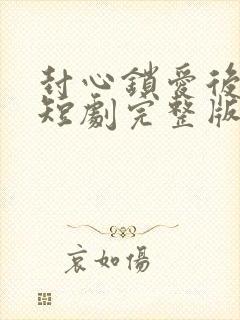 封心鎖愛後
短劇完整版
哀如傷